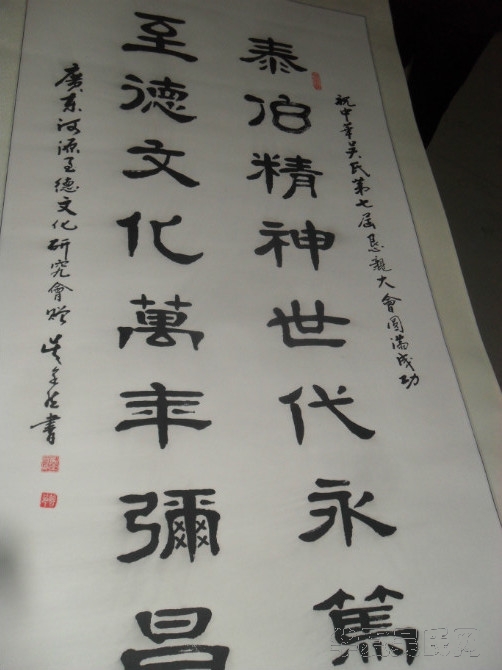 祝中華吴氏第七届恳親大會圆满成功
泰伯精神世代永篤
至德文化萬年彌昌
廣东河源至德文化研究會贈
書